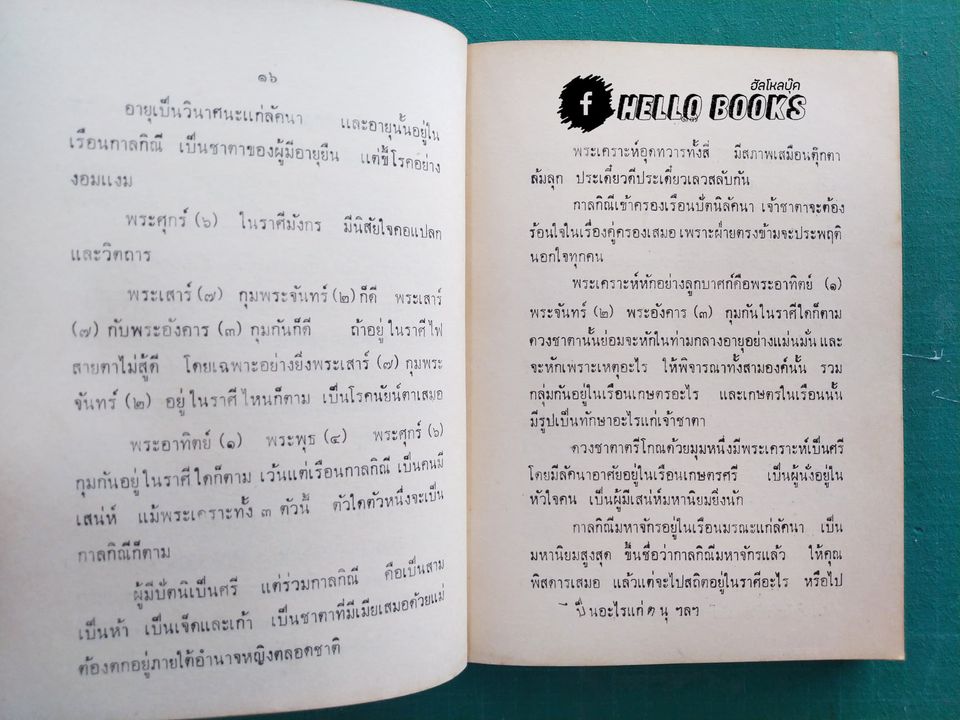 ๑๖
อายุเป็นวินาศนะแก่ลัคนา และอายุนั้นอยู่ใน
เรือนกาลกิณี เป็นชาตาของผู้มีอายุยืน แต่ขี้โรคอย่าง
งอมแงม
พระศุกร์ (๖) ในราศีมังกร มีนิสัยใจคอแปลก
และวิตถาร
พระเสาร์ (๗) กุมพระจันทร์ (๒) ก็ดี พระเสาร์
(๗) กับพระอังคาร (๓) กุมกันก็ดี ถ้าอยู่ในราศีไฟ
สายตาไม่สู้ดี โดยเฉพาะอย่างยิ่งพระเสาร์ (๗) กุมพระ
จันทร์ (๒) อยู่ในราศีไหนก็ตาม เป็นโรคนัยน์ตาเสมอ
พระอาทิตย์ (๑) พระพุธ (๔) พระศุกร์ (๖)
กุมกันอยู่ในราศีใดก็ตาม เว้นแต่เรือนกาลกิณี เป็นคนมี
เสน่ห์ แม้พระเคราะห์ทั้ง ๓ ตัวนี้ ตัวใดตัวหนึ่งจะเป็น
กาลกิณีก็ตาม
ผู้มีปัตนิเป็นศรี แต่ร่วมกาลกิณี คือเป็นสาม
เป็นห้า เป็นเจ็ดและเก้า เป็นชาตาที่มีเมียเสมอด้วยแม่
ต้องตกอยู่ภายใต้อำนาจหญิงตลอดชาติ
ฮัลโหลบุ๊ค
f HELLO BOOKS
พระเคราะห์อุดทวารทั้งสี่ มีสภาพเสมือนตุ๊กตา
ล้มลุก ประเดี๋ยวดีประเดี๋ยวเลวสลับกัน
กาลกิณีเข้าครองเรือนปัตนิลัคนา เจ้าชาตาจะต้อง
ร้อนใจในเรื่องคู่ครองเสมอ เพราะฝ่ายตรงข้ามจะประพฤติ
นอกใจทุกคน
พระเคราะห์หักอย่างลูกบาศก์คือพระอาทิตย์ (๑)
พระจันทร์ (๒) พระอังคาร (๓) กุมกันในราศีใดก็ตาม
ดวงชาตานั้นย่อมจะหักในท่ามกลางอายุอย่างแม่นมั่น และ
จะหักเพราะเหตุอะไร ให้พิจารณาทั้งสามองค์นั้น รวม
กลุ่มกันอยู่ในเรือนเกษตรอะไร และเกษตรในเรือนนั้น
มีรูปเป็นทักษาอะไรแก่เจ้าชาตา
ดวงชาตาตรีโกณด้วยมุมหนึ่งมีพระเคราะห์เป็นศรี
โดยมีลัคนาอาศัยอยู่ในเรือนเกษตรศรี เป็นผู้นั่งอยู่ใน
หัวใจคน เป็นผู้มีเสน่ห์มหานิยมยิ่งนัก
กาลกิณีมหาจักรอยู่ในเรือนมรณะแก่ลัคนา เป็น
มหานิยมสูงสุด ขึ้นชื่อว่ากาลกิณีมหาจักรแล้ว ให้คุณ
พิสดารเสมอ แล้วแต่จะไปสถิตอยู่ในราศีอะไร หรือไป
เป็นอะไรแก่ตนุ ฯลฯ